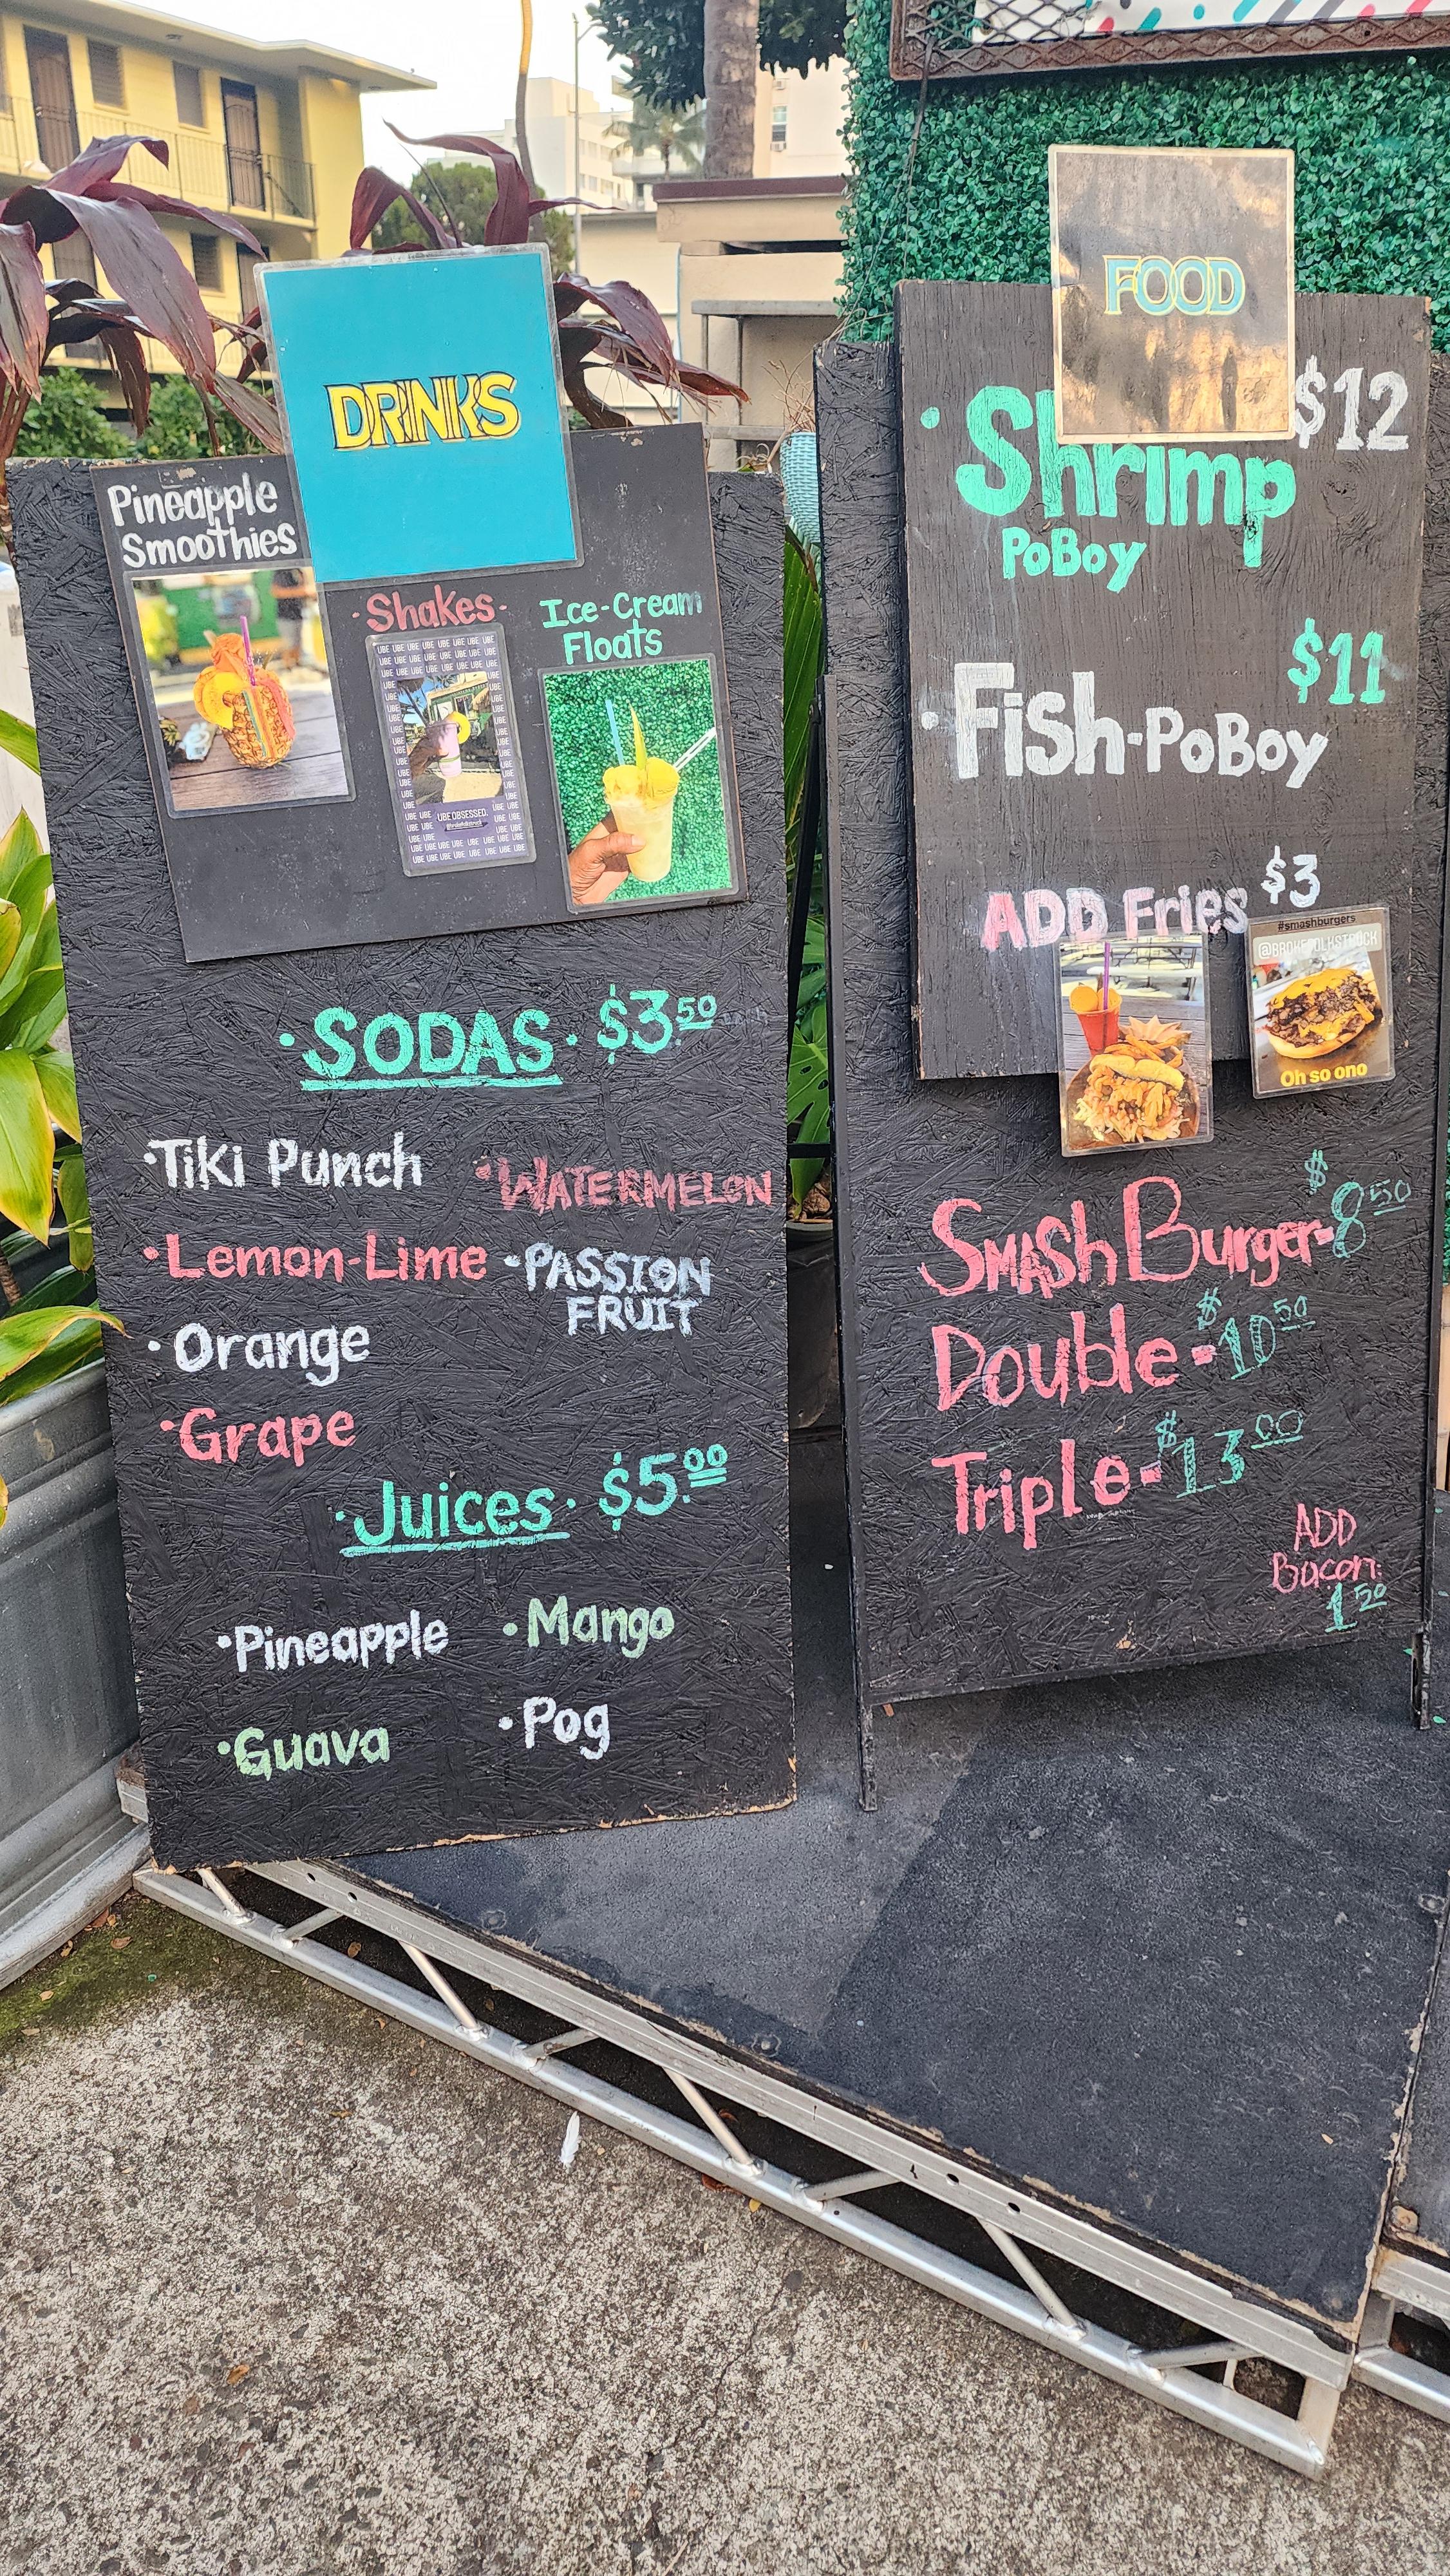 DRINKS
Pineapple
Smoothies
·Shakes·
Ice-Cream
Floats
UBE OBSESSED.
·SODAS· $3.50
·Tiki Punch
·WATERMELON
·Lemon-Lime
·PASSION
FRUIT
·Orange
·Grape
·Juices· $5.00
·Pineapple
·Mango
·Guava
·Pog
FOOD
$12
·Shrimp
PoBoy
$11
·Fish-PoBoy
ADD Fries $3
#smashburgers
@BROKEFOLKSTRUCK
Oh so ono
SMASh Burger-$8 50
Double-$10 50
Triple-$13 00
ADD
Bacon:
1 50